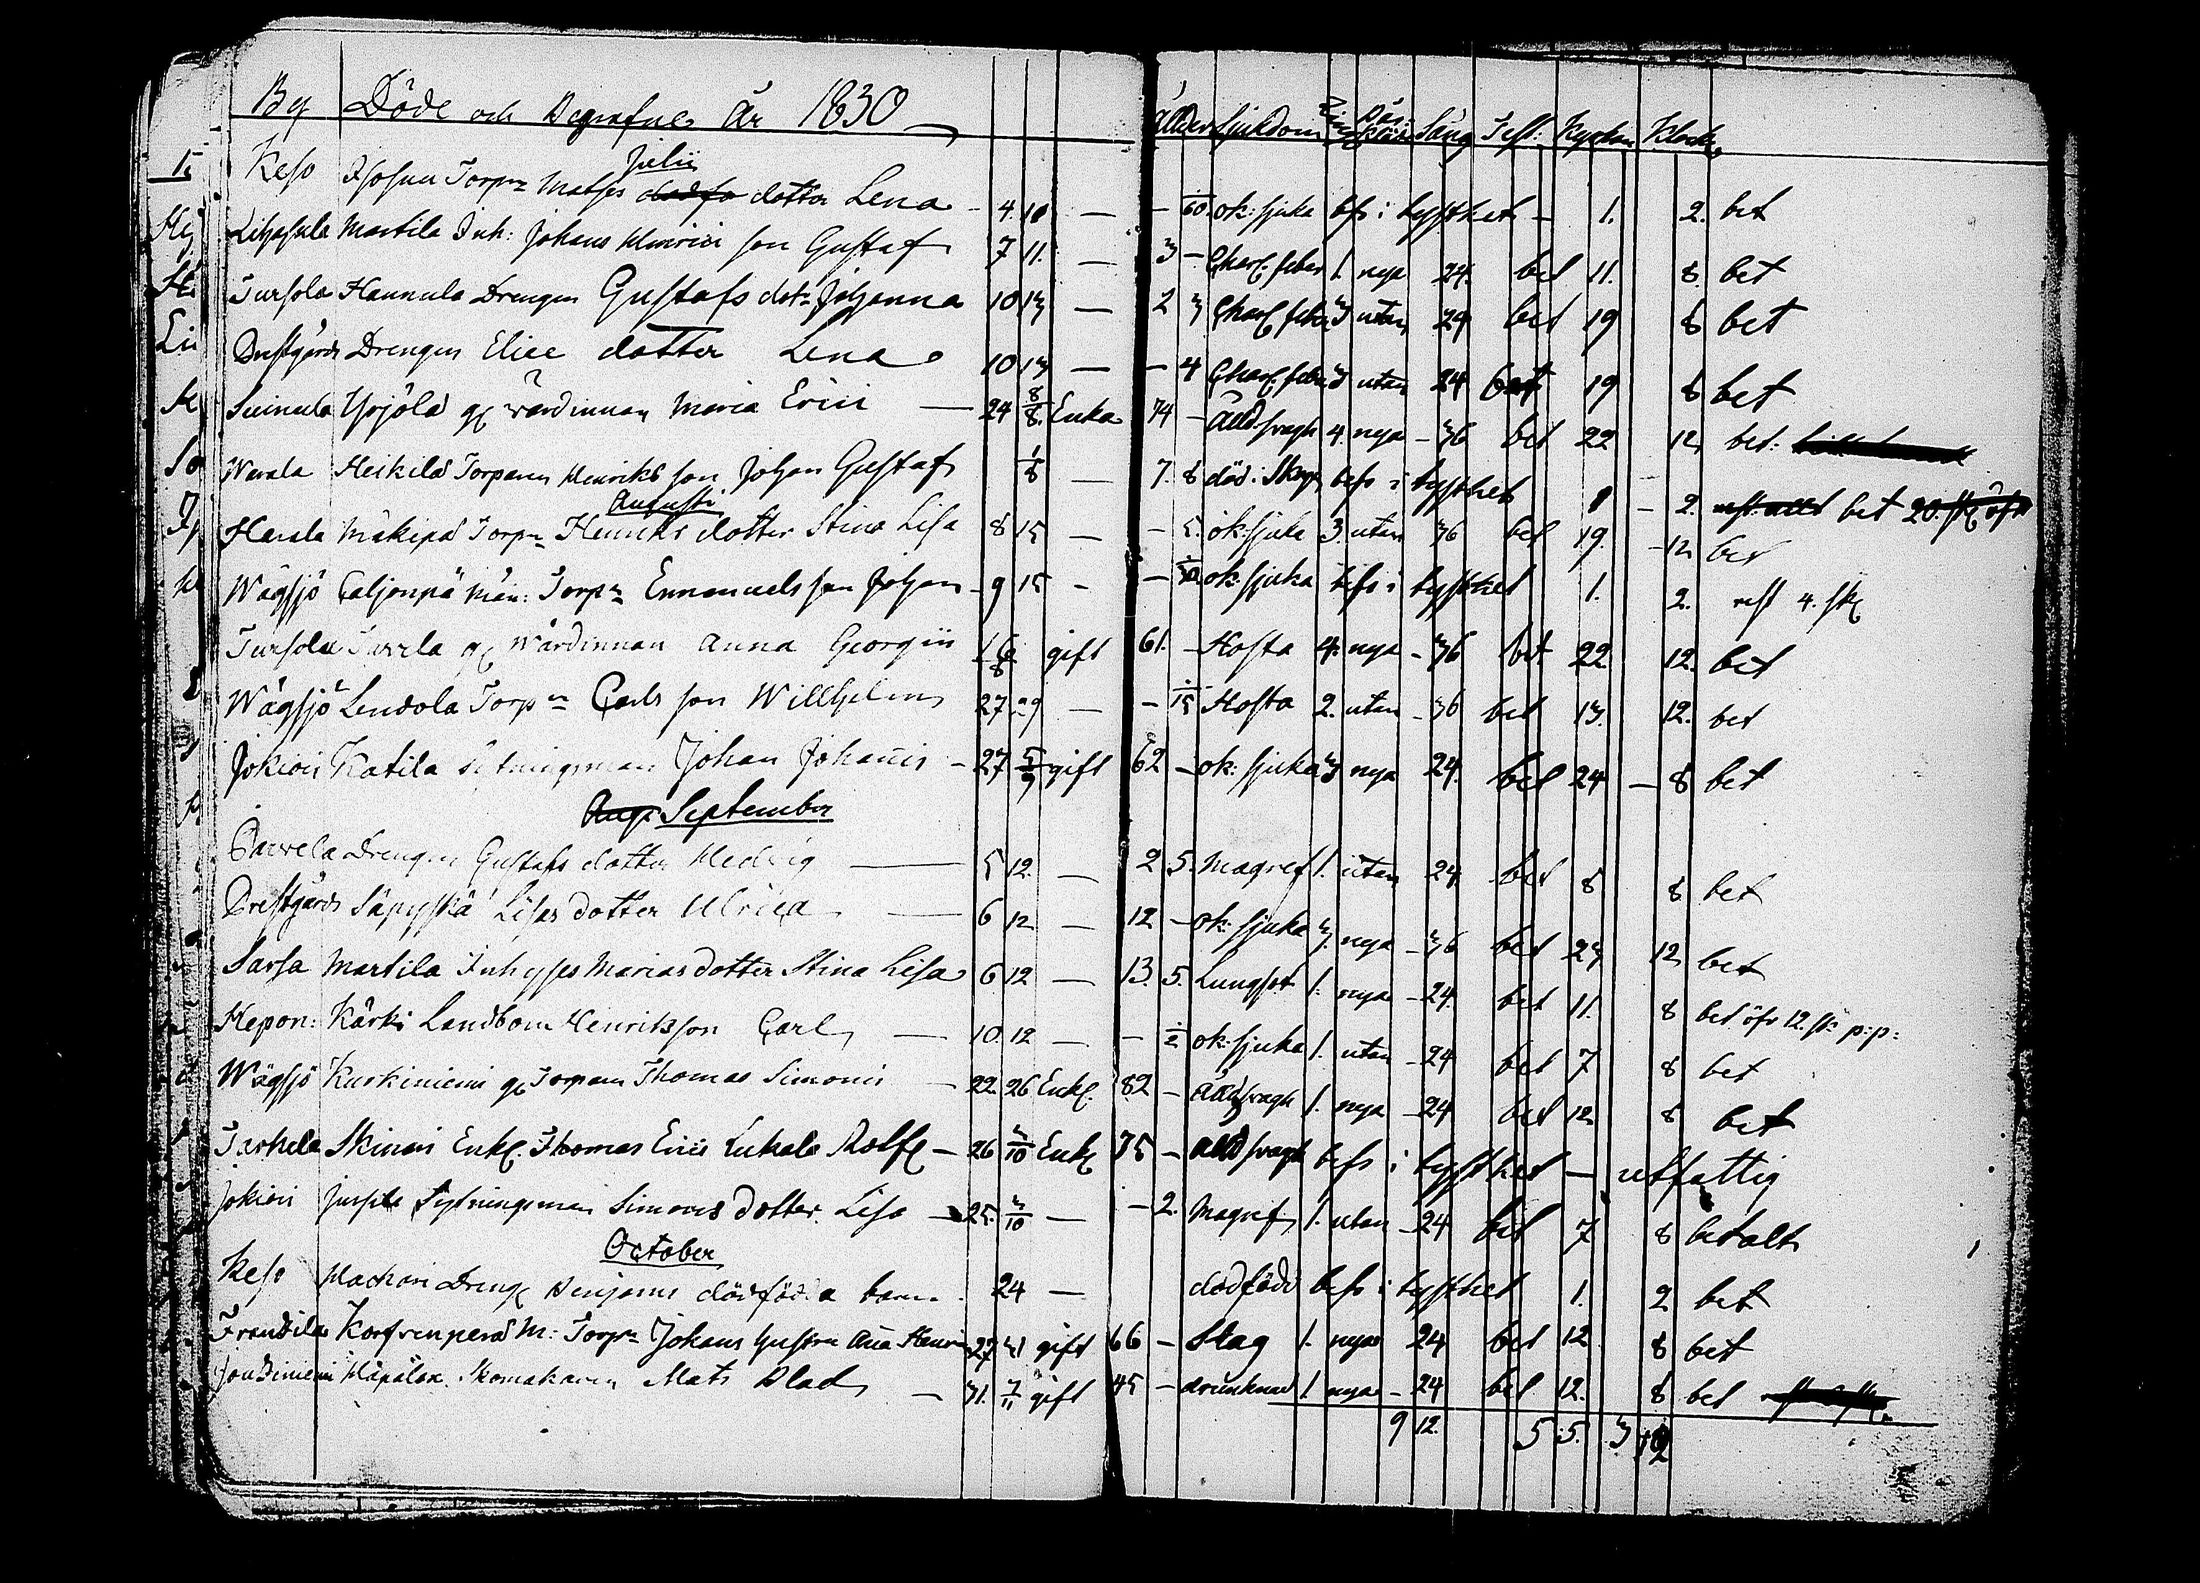 By Döde och Begrafne År 1830 Ålder Sjukdom Ring Bår: kläde Säng Test: Kyrkan Klock:
Julii
Keso Isosuu Torp: Matses dotter Lena 4 10 — — 1/60 ok: sjuka bfs i tysthet — 1. 2. bet
Martila Inh: Johans Henrici son Gustaf 7 11. — 3 — Charl. feber 1. nya 24. bet 11. 8. bet
Tursola Hannula Drengen Gustafs dotr Johanna 10 13 — 2 3 Charl. feber 3 utan 24 bet 19 8 bet
Prestgårds Drengen Elice dotter Lena 10 13 — — 4 Charl. feber 3 utan 24 bet 19 8 bet
Suinula Yrjölä gl wärdinnan Maria Erici — 24 8/8. Enka 74 — Ålld. svagh 4. nya — 36 bet 22 12 bet:
Warala Heikilä Torparen Henriks son Johan Gustaf 1/8 — 7. 8 död i Skogs bfs i tysthet 1 — 2. bet
Augusti
Harala Mäkipää Torpr Henriks dotter Stina Lisa 8 15 — — 5. ok: sjuka 3. utan 36 bet 19. — 12 bet
Wägsjö Torpr Emanuels son Johan 9 15 — — ok: sjuka bfs i tysthet 1. 2. rest 4. sk
Tursola gl Wärdinnan Anna Georgii 16/8 gift 61. — Hosta 4. nya — 36 bet 22 12. bet
Wägsjö Lendola Torpr Carls son Willhelm 27 29 — — 1/15 Hosta 2. utan — 36 bet 13. 12. bet
Jokiois Katila sytningsman Johan Johanis — 27 5/9 gift 62 — ok: sjuka 3 nya 24. bet 24 — 8 bet
Aug: September
Pawela Drengen Gustafs dotter Hedvig — 5 12. — 2 5. Magref 1. utan 24 bet 8 8 bet
Prestgårds Säpyskä Lisas dotter Ulrica — 6 12 — 12 — ok: sjuka 3. nya — 36 bet 23 12 bet
Sarsa Martila Inhyses Marias dotter Stina Lisa 6 12 — 13. 5. Lungsot 1. nya — 24. bet 11. 8 bet öfr 12. sk p:p:
Kepon: Kärki Landbon Henriks son Carl — 10. 12 — — 1/2 ok: sjuka 1. utan — 24 bet 7 8 bet
Wägsjö Kurkiniemi gl Torparn Thomas Simonis — 22. 26 Enkl. 82 — Ålld svagh 1. nya — 24 bet 12 8 bet
Skinari Enkl. Thomas Erici Rolf — 26 3/10 Enkl 75 — Alld svagh bfs i tysthet — utfattig
Jokiois Jussila Sytningsman Simons dotter Lisa — 25. 3/10 — — 2. Magref 1. utan — 24 bet 7 8 betalt
October
Keso Drengl Benjams dödfödda barn. 24 — dödfödd bfs i tysthet 1. 2 bet
Frantsila M: Torpr Johans hustru Aña Henri 27 31 gift 66 — Slag 1. nya 24 bet 12 8 bet
Skomakaren Mats Blad — 31. 7/11 gift 45 — drunknad 1 nya — 24 bet 12. 8 bet
9 12. 5 5. 3 12